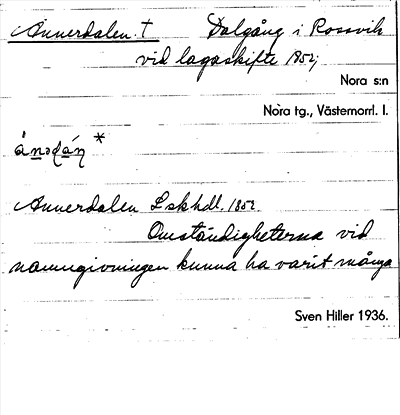 Annerdalen † Dalgång i Rossvik
vid lagaskifte 1852;
Nora s:n
Nora tg., Västernorrl. l.
Annerdalen Lskhdl. 1852.
Omständigheterna vid
namngivningen kunna ha varit många
Sven Hiller 1936.